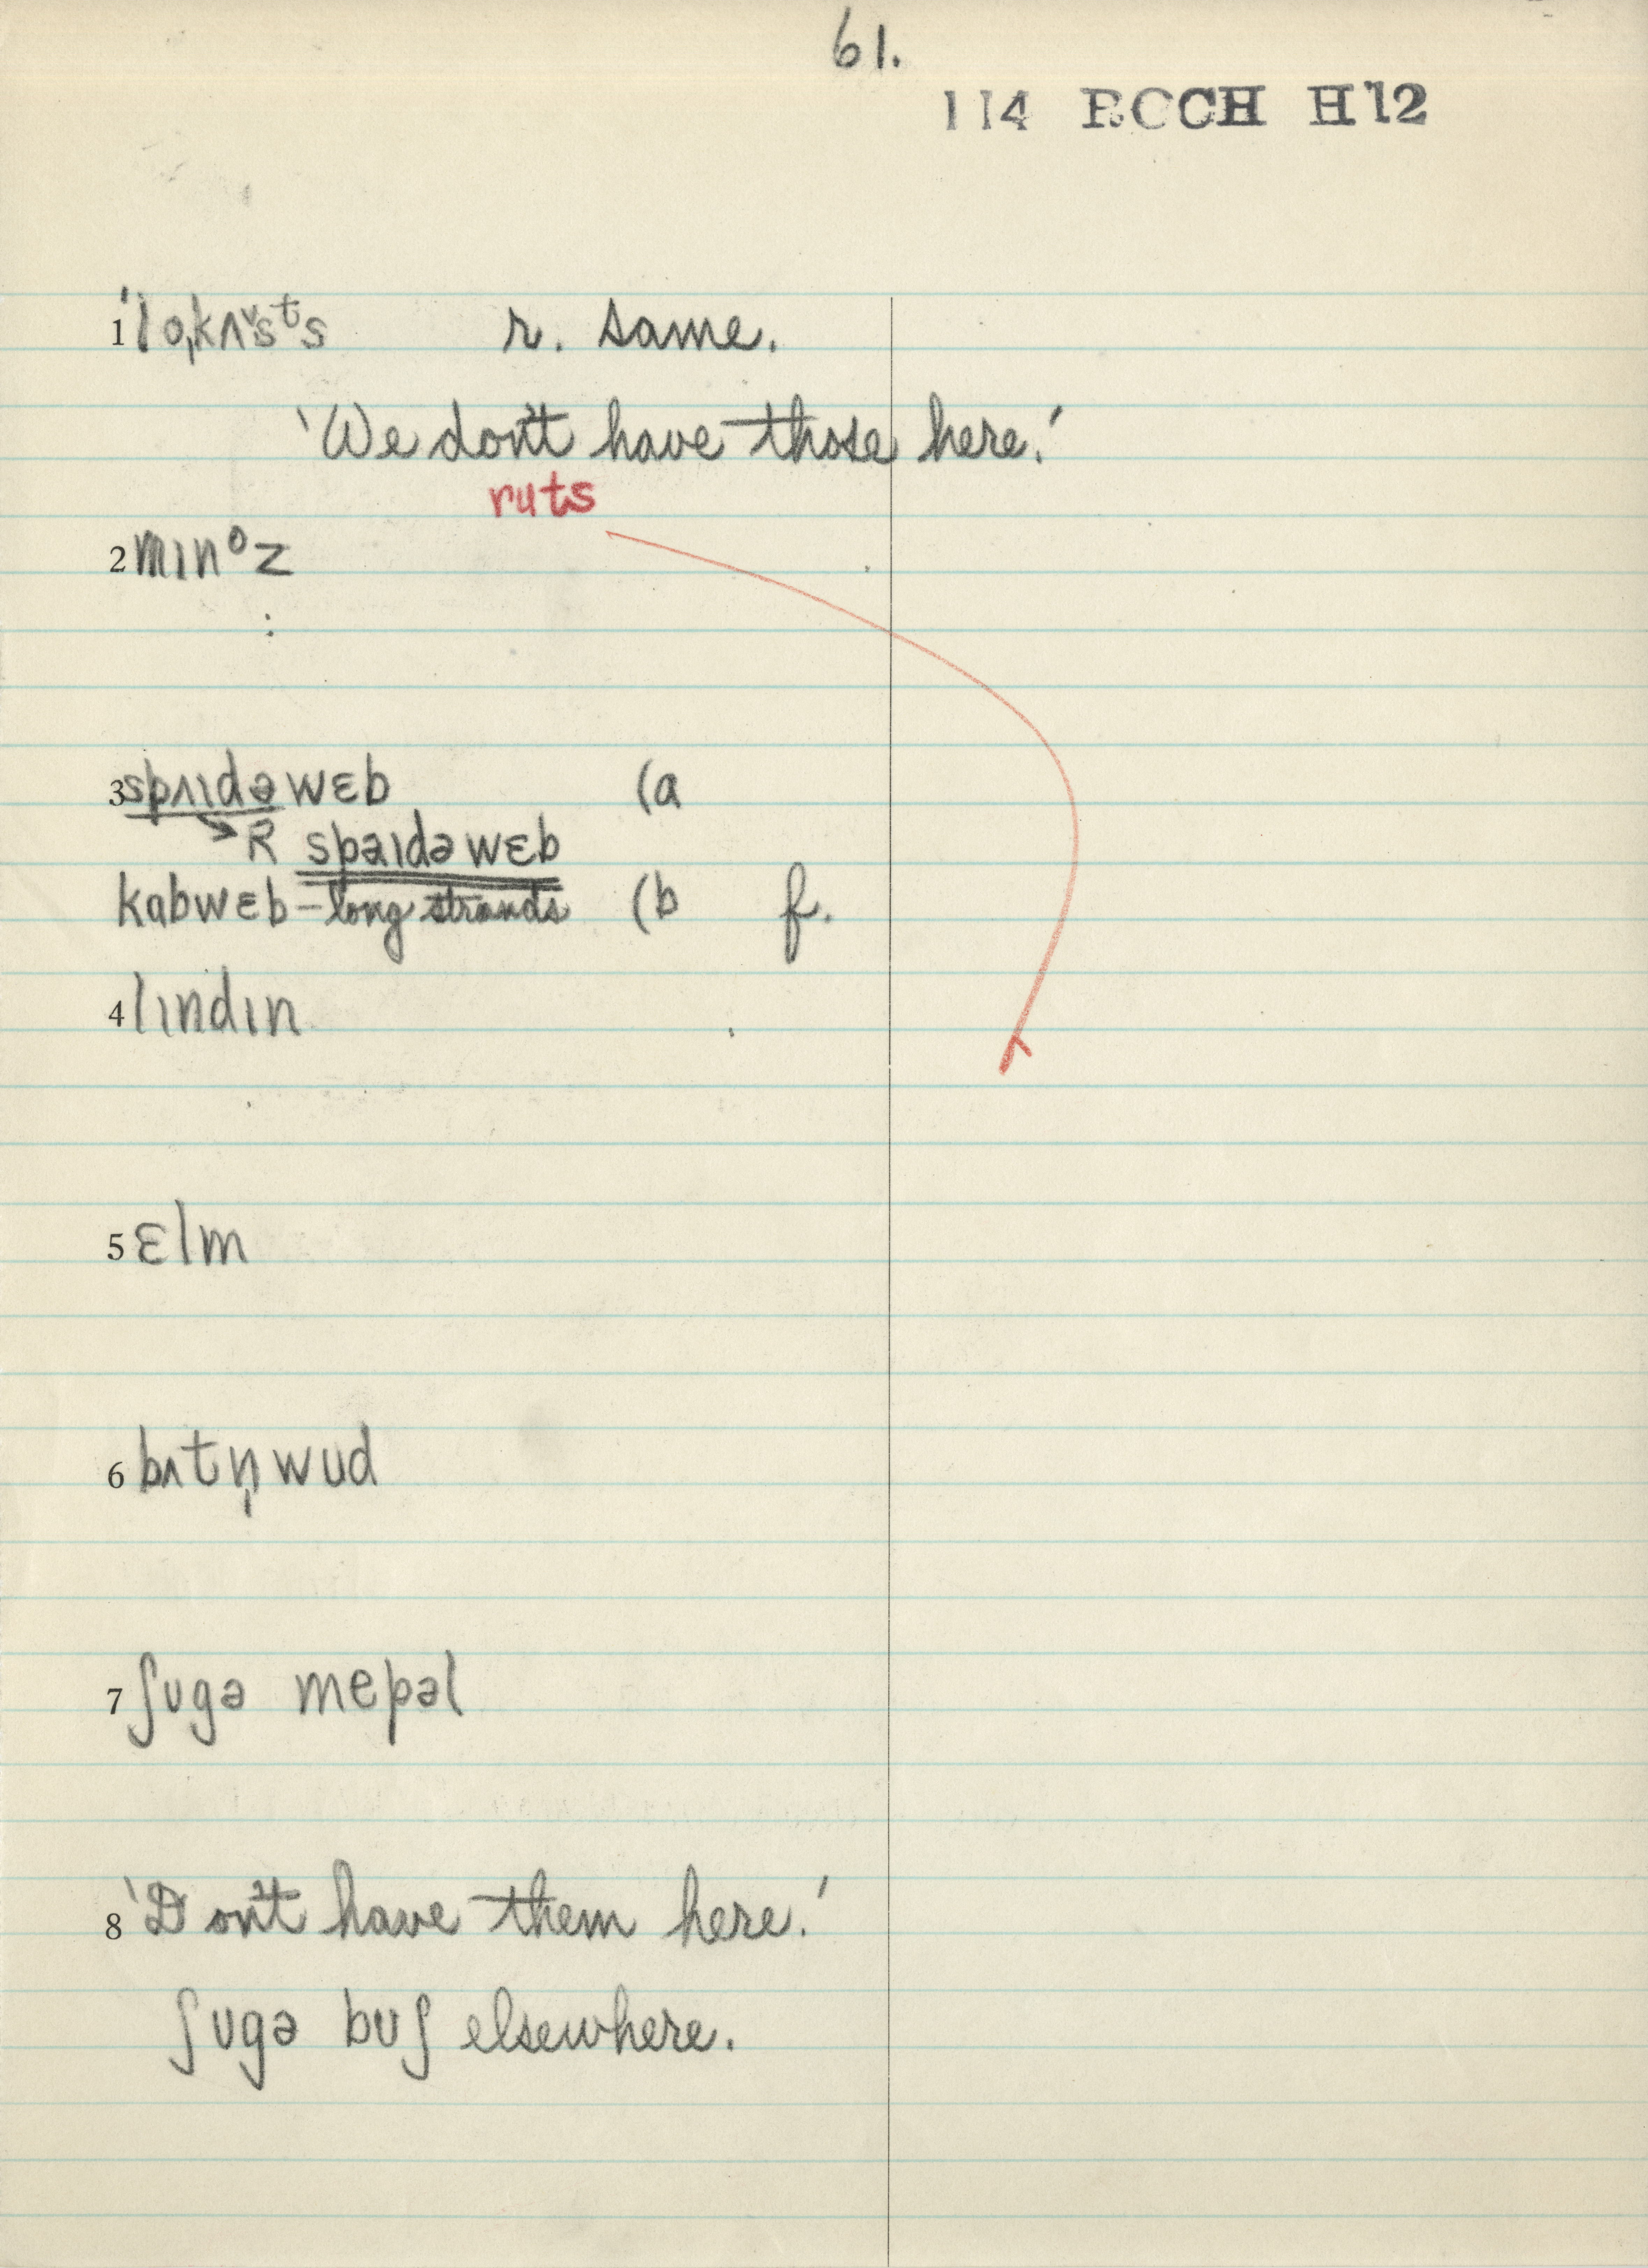 61.
114 RCCH H12
1 'lo,kʌᵛsᵗs r. same.
'We don't have those here.'
ruts
2 mɪnᵒz
3 spʌɪdə wɛb (a
R spəɪdə wɛb
kabwɛb – long strands (b f.
4 lɪndɪn
5 ɛlm
6 bʌtn̩wud
7 ʃʊgə mepəl
8 'Don't have them here.'
ʃʊgə bʊʃ elsewhere.